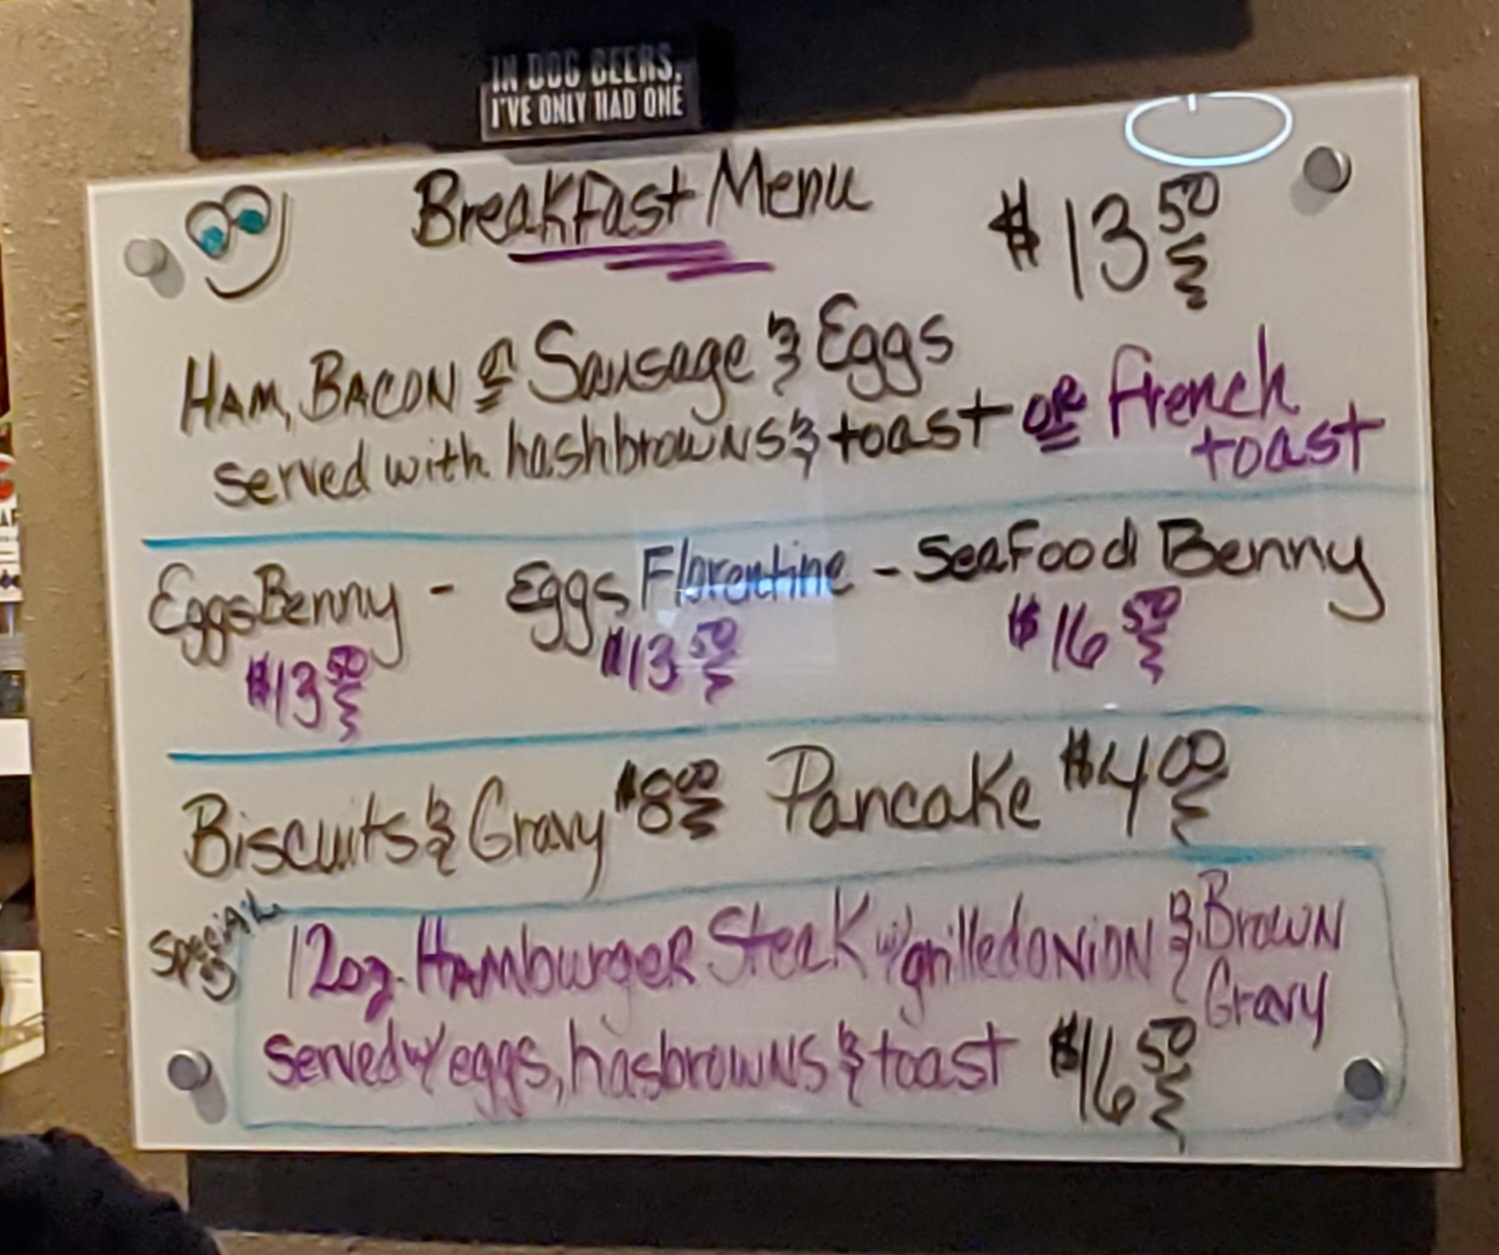 IN DOG BEERS,
I'VE ONLY HAD ONE
Breakfast Menu $13 50
HAM, BACON or Sausage & Eggs
served with hashbrowns & toast or french
toast
Eggs Benny - Eggs Florentine - Seafood Benny
$13 50 $13 50 $16 50
Biscuits & Gravy $8 00 Pancake $4 00
Special
12oz. Hamburger Steak w/ grilled onion & Brown
Gravy
served w/ eggs, hasbrowns & toast $16 50